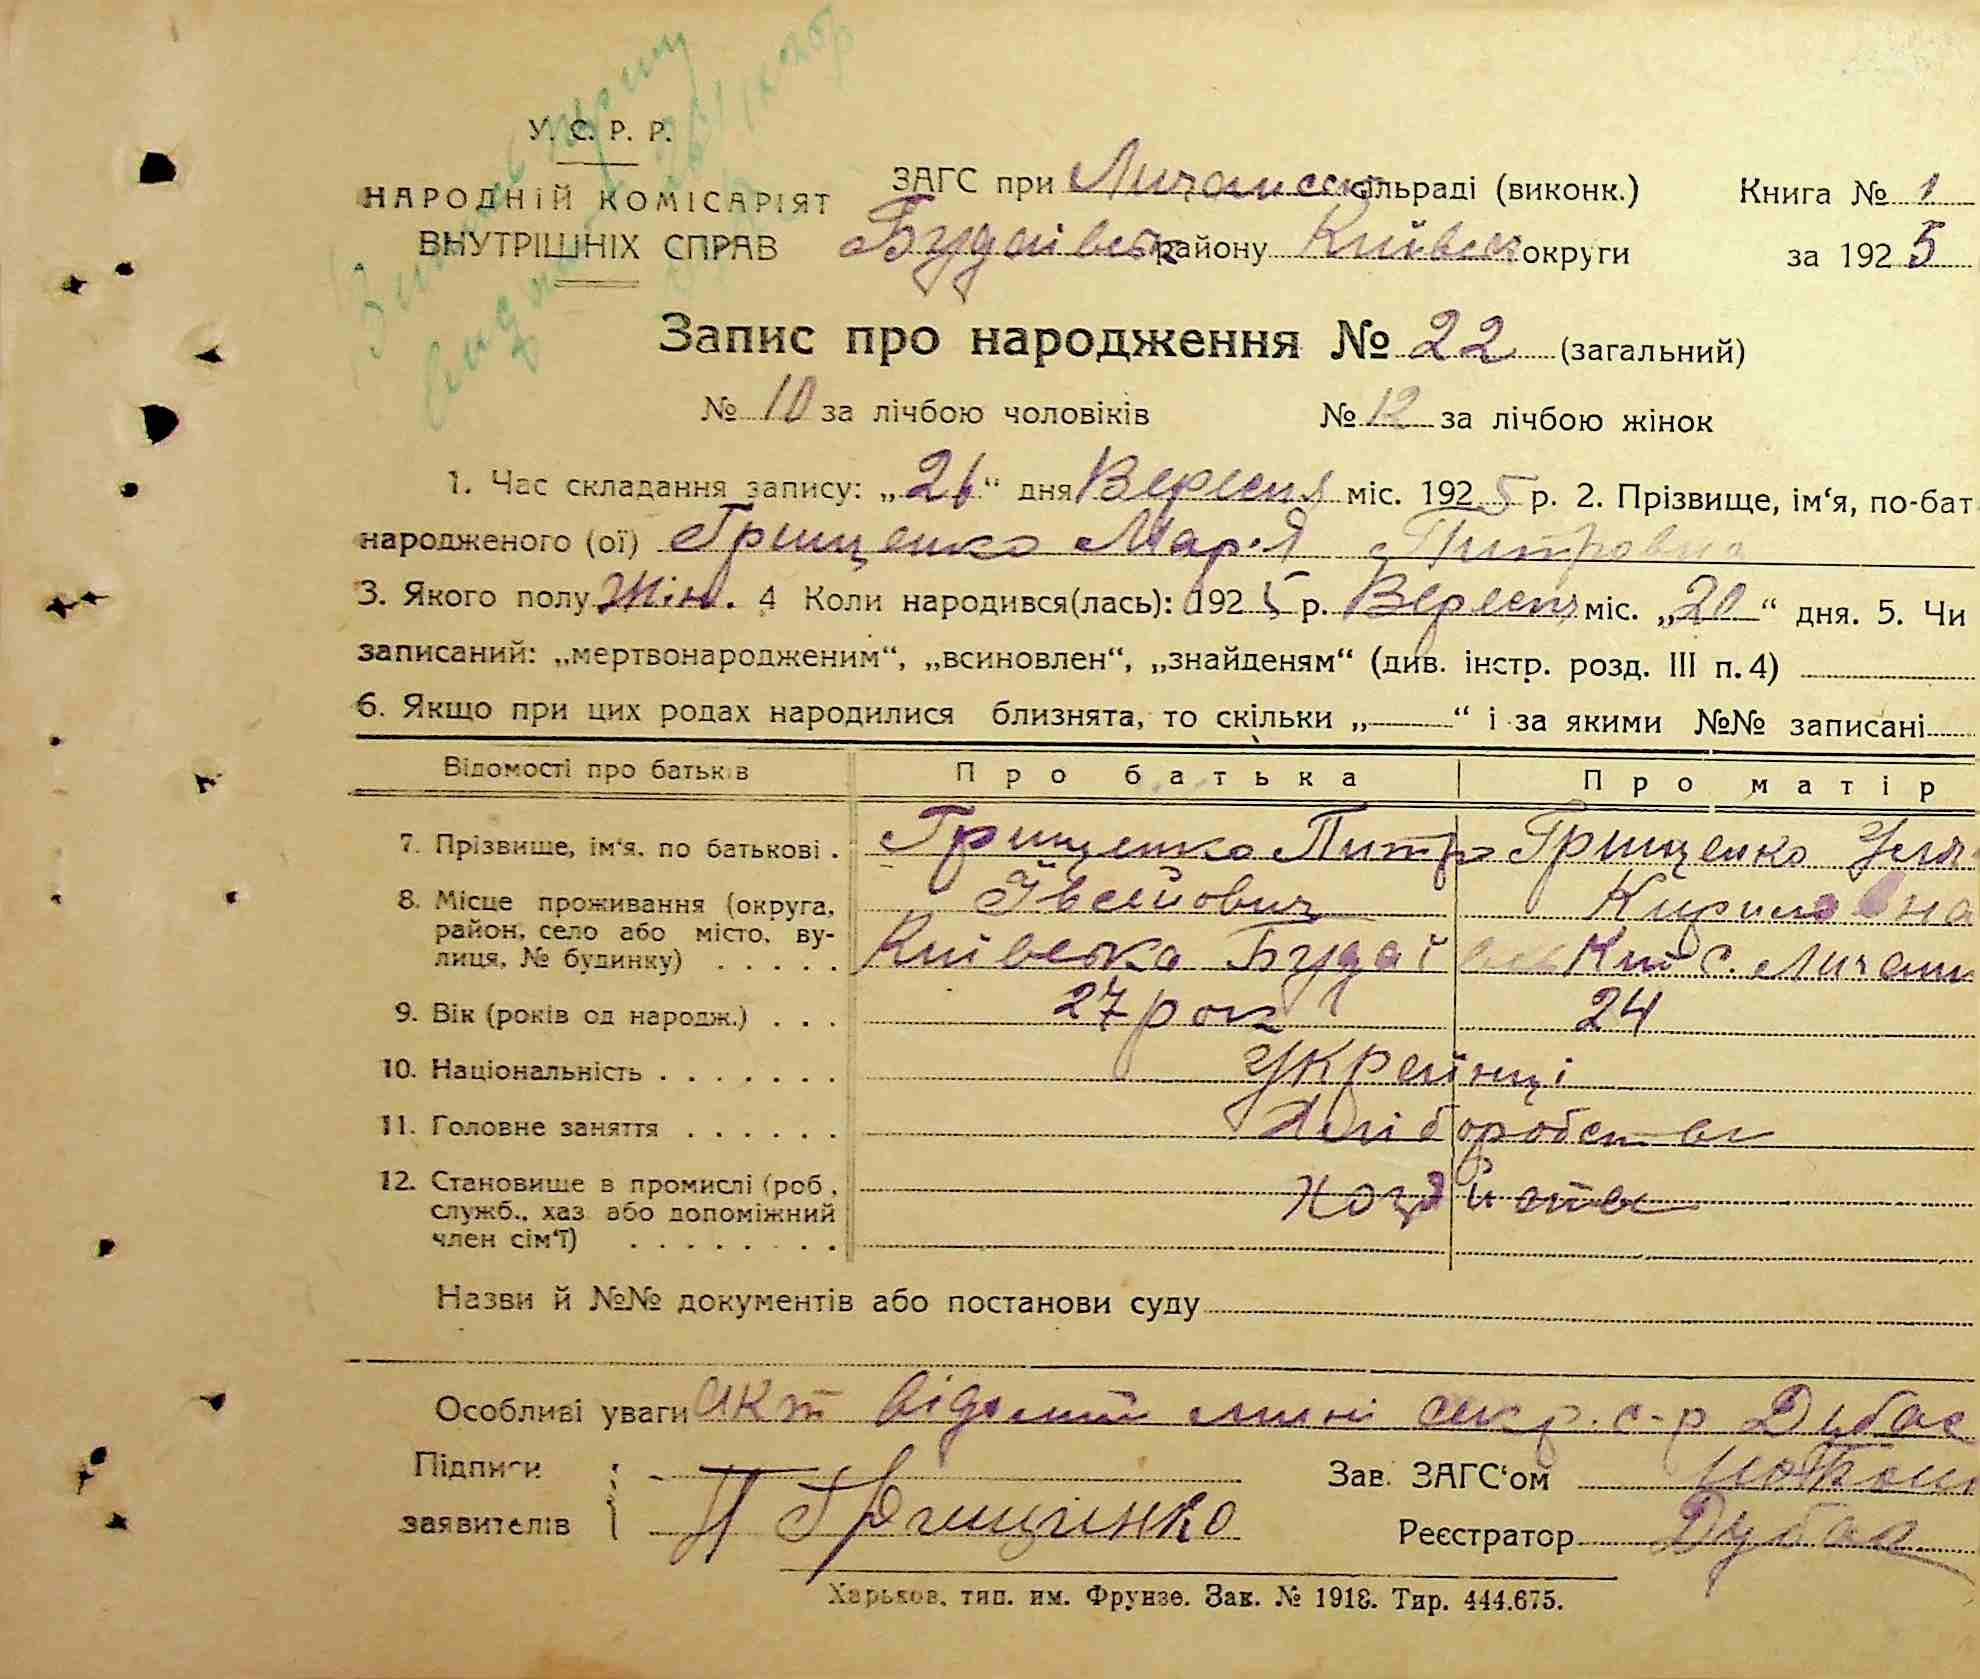 У. С. Р. Р.
НАРОДНІЙ КОМІСАРІЯТ
ВНУТРІШНІХ СПРАВ
ЗАГС при Личанс сільраді (виконк.) Книга № 1
Будаївськ району Київськ округи за 1925
Запис про народження № 22 (загальний)
№ 10 за лічбою чоловіків № 12 за лічбою жінок
1. Час складання запису: „26“ дня Вересня міс. 1925 р. 2. Прізвище, ім‘я, по-бат
народженого (ої) Грищенко Марія Питровна
3. Якого полу Жін. 4 Коли народився(лась): 1925 р. Вересня міс. „20“ дня. 5. Чи
записаний: „мертвонародженим“, „всиновлен“, „знайденям“ (див. інстр. розд. III п. 4)
6. Якщо при цих родах народилися близнята, то скільки „—“ і за якими №№ записані
Відомості про батьків Про батька Про матір
7. Прізвище, ім‘я, по батькові . Грищенко Питро Грищенко
Кириловна
8. Місце проживання (округа, район, село або місто, вулиця, № будинку) . . . . . Київська Будаї с. Личанк
9. Вік (років од народж.) . . . 27 рок 24
10. Національність . . . . . . . Украйнці
11. Головне заняття . . . . . . Хліборобств
12. Становище в промислі (роб., служб., хаз. або допоміжний член сім‘ї) . . . . . . . .
Назви й №№ документів або постанови суду
Особливі уваги Акт відомий мині секр. с-р Дубас
Підписи Зав. ЗАГС‘ом
заявителів П Грищінко Реєстратор Дубас
Харьков, тип. им. Фрунзе. Зак. № 1918. Тир. 444.675.